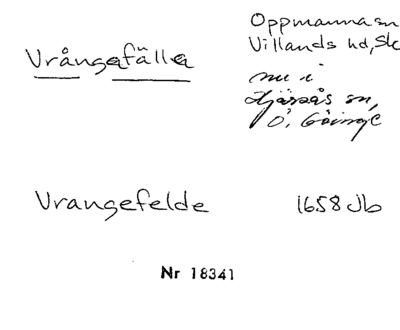 Vrångafälla
Oppmanna sn
Villands hd, Sk
nu i
Hjärsås sn,
Ö. Göinge
Vrangefelde 1658 Jb
Nr 18341